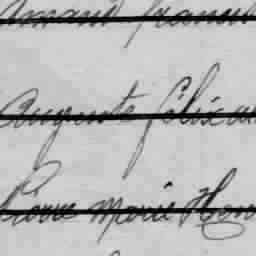 Armand Franc
Auguste Félix
Pierre Marie Hen